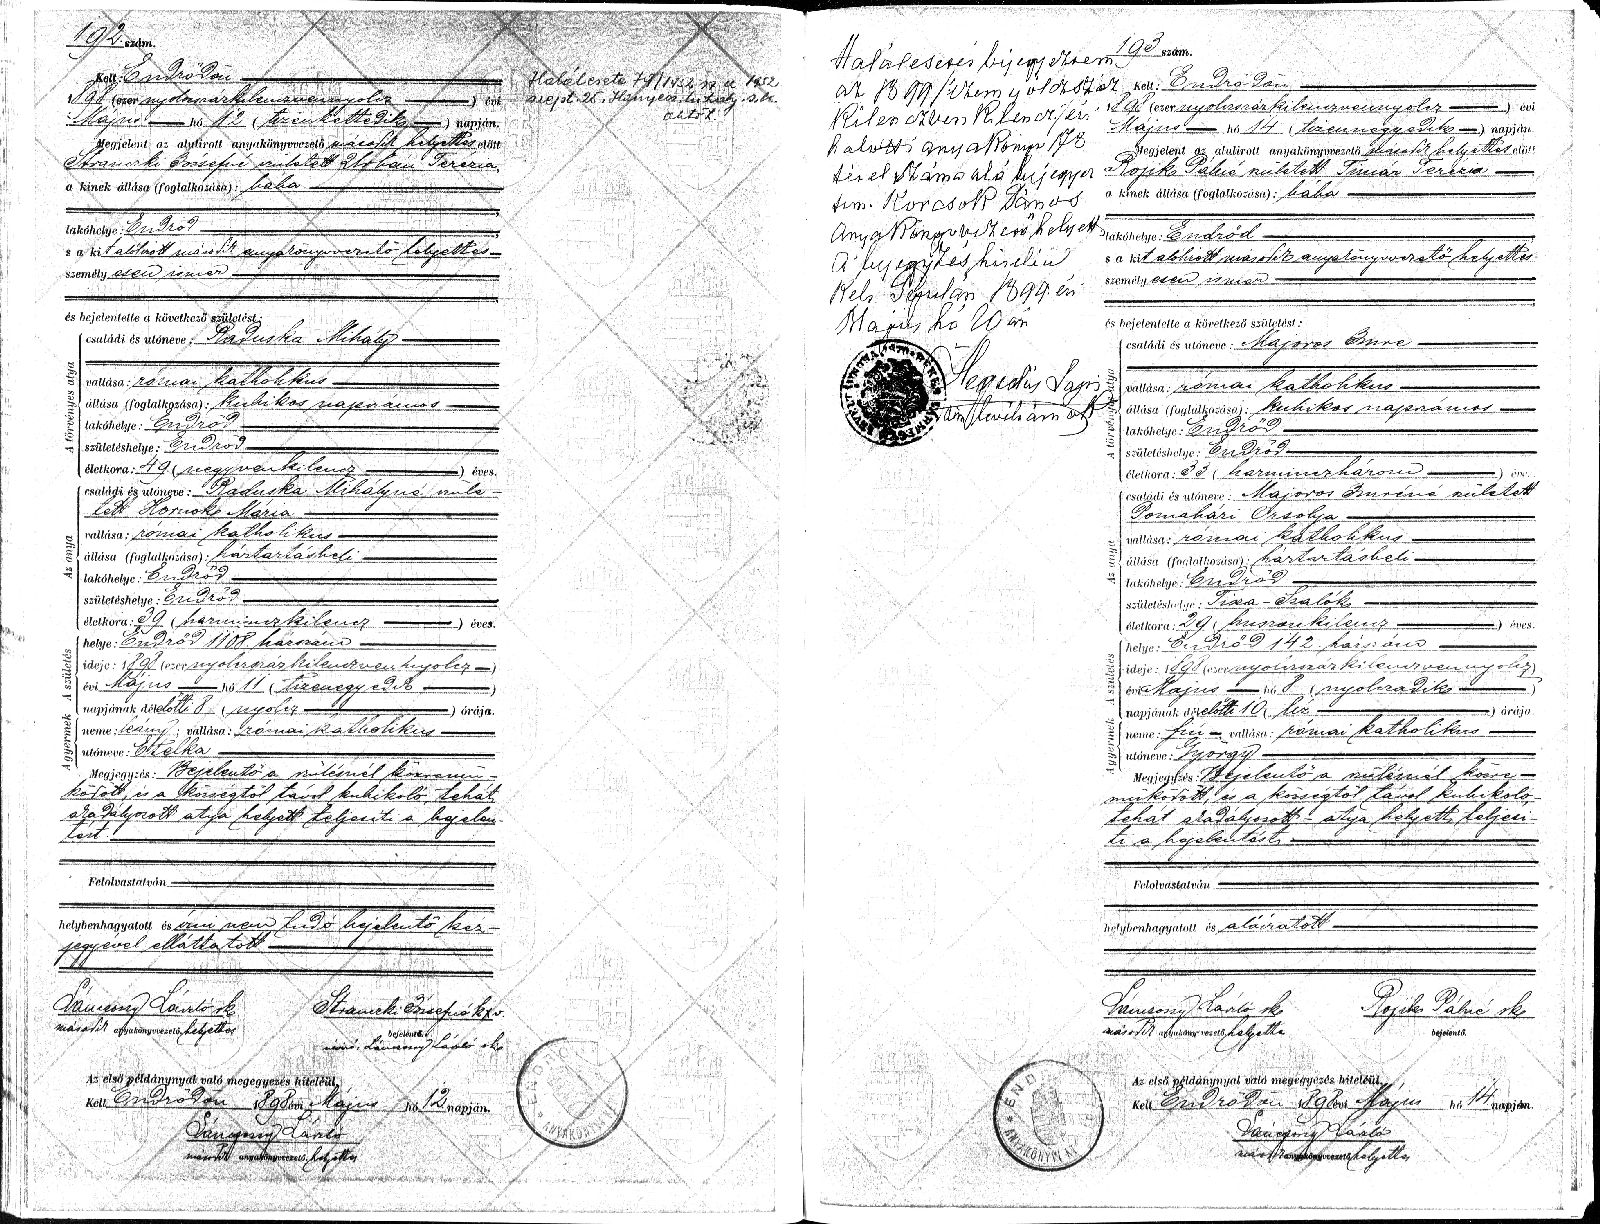 192 szám.
Kelt: Endrődön
1898 (ezer nyolcszázkilenczvennyolcz) évi
Május hó 12 (tizenkettedik) napján.
Megjelent az alulirott anyakönyvvezető másodk helyettes előtt
Strancski Józsefné született Urbán Terézia
a kinek állása (foglalkozása): bába
lakóhelye: Endrőd
s a kit alólirott másodk anyakönyvvezető helyettes
személyesen ismer
és bejelentette a következő születést:
A törvényes atya
családi és utóneve: Raduska Mihály
vallása: római katholikus
állása (foglalkozása): kubikos napszámos
lakóhelye: Endrőd
születéshelye: Endrőd
életkora: 49 (negyvenkilencz) éves.
Az anya
családi és utóneve: Raduska Mihályné szüle-
tett Hornok Mária
vallása: római katholikus
állása (foglalkozása): háztartásbeli
lakóhelye: Endrőd
születéshelye: Endrőd
életkora: 39 (harminczkilencz) éves.
A születés
helye: Endrőd 1108 házszám
ideje: 1898 (ezer nyolczszázkilenczvennyolcz)
évi Május hó 11 (tizenegyedik)
napjának délelőtti 8 (nyolcz) órája.
A gyermek
neme: leány; vallása: római katholikus
utóneve: Etelka
Megjegyzés: Bejelentő a szülésnél közremű-
ködött, és a községtől távol kubikoló, tehát
akadályozott atya helyett teljesiti a bejelen-
tést
Felolvastatván
helybenhagyatott és írni nem tudó bejelentő kéz-
jegyével elláttatott
Vánčsony László sk
másodk anyakönyvvezető helyettes
Strancski Józsefné k.x.v.
bejelentő.
Az első példánynyal való megegyezés hiteléül,
Kelt Endrődön 1898 évi Május hó 12 napján.
László
másodk anyakönyvvezető helyettes
ENDRŐD
ANYAKÖNYVI
Halálesete
193 szám.
Halálesetés bejegyeztem
az 1899/ezernyolczszáz
kilenczvenkilencz/évi
halotti anyakönyv 72
tétel száma alá bejegyez
tem. Korcsok János
anyakönyvvezető helyett
A bejegyzés hiteléül
Kelt Gyulán 1899 évi
Május hó 20 án
Kelt: Endrődön
1898 (ezer nyolczszázkilenczvennyolcz) évi
Május hó 14 (tizennegyedik) napján.
Megjelent az alulirott anyakönyvvezető másodk helyettes előtt
Rojik Pálné született Timár Terézia
a kinek állása (foglalkozása): bába
lakóhelye: Endrőd
s a kit alólirott másodk anyakönyvvezető helyettes
személyesen ismer
és bejelentette a következő születést:
A törvényes atya
családi és utóneve: Majoros Imre
vallása: római katholikus
állása (foglalkozása): kubikos napszámos
lakóhelye: Endrőd
születéshelye: Endrőd
életkora: 33 (harminczhárom) éves
Az anya
családi és utóneve: Majoros Imréné született
Pomaházi Orsolya
vallása: római katholikus
állása (foglalkozása): háztartásbeli
lakóhelye: Endrőd
születéshelye: Tisza-Szalók
életkora: 29 (huszonkilencz) éves.
A születés
helye: Endrőd 142 házszám
ideje: 1898 (ezer nyolczszázkilenczvennyolcz)
évi Május hó 8 (nyolczadik)
napjának délelőtti 10 (tiz) órája
A gyermek
neme: fiu vallása: római katholikus
utóneve: György
Megjegyzés: Bejelentő a szülésnél közre-
működött, és a községtől távol kubikoló,
tehát akadályozott atya helyett teljesi-
ti a bejelentést
Felolvastatván
helybenhagyatott és aláiratott
László sk
másodk anyakönyvvezető helyettes
Rojik Pálné sk
bejelentő.
Az első példánynyal való megegyezés hiteléül,
Kelt Endrődön 1898 évi Május hó 14 napján.
László
másodk anyakönyvvezető helyettes
ENDRŐD
ANYAKÖNYVI